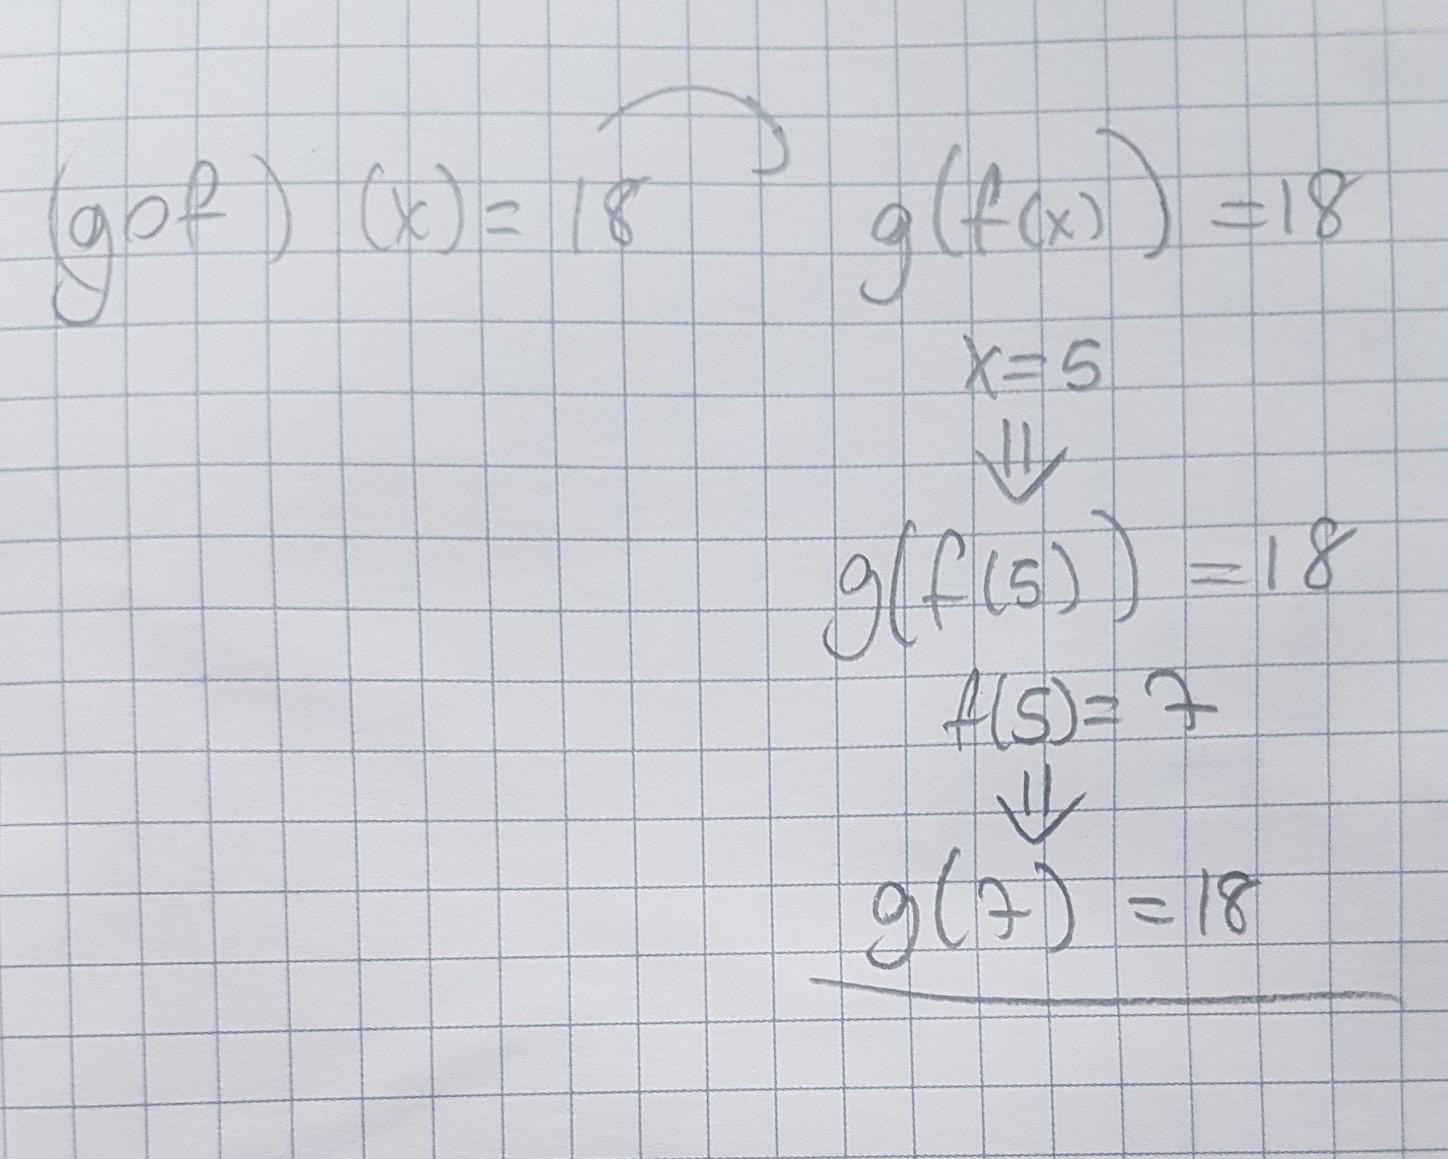 (gof) (x) = 18 g(f(x)) = 18
x = 5
⇓
g(f(5)) = 18
f(5) = 7
⇓
g(7) = 18